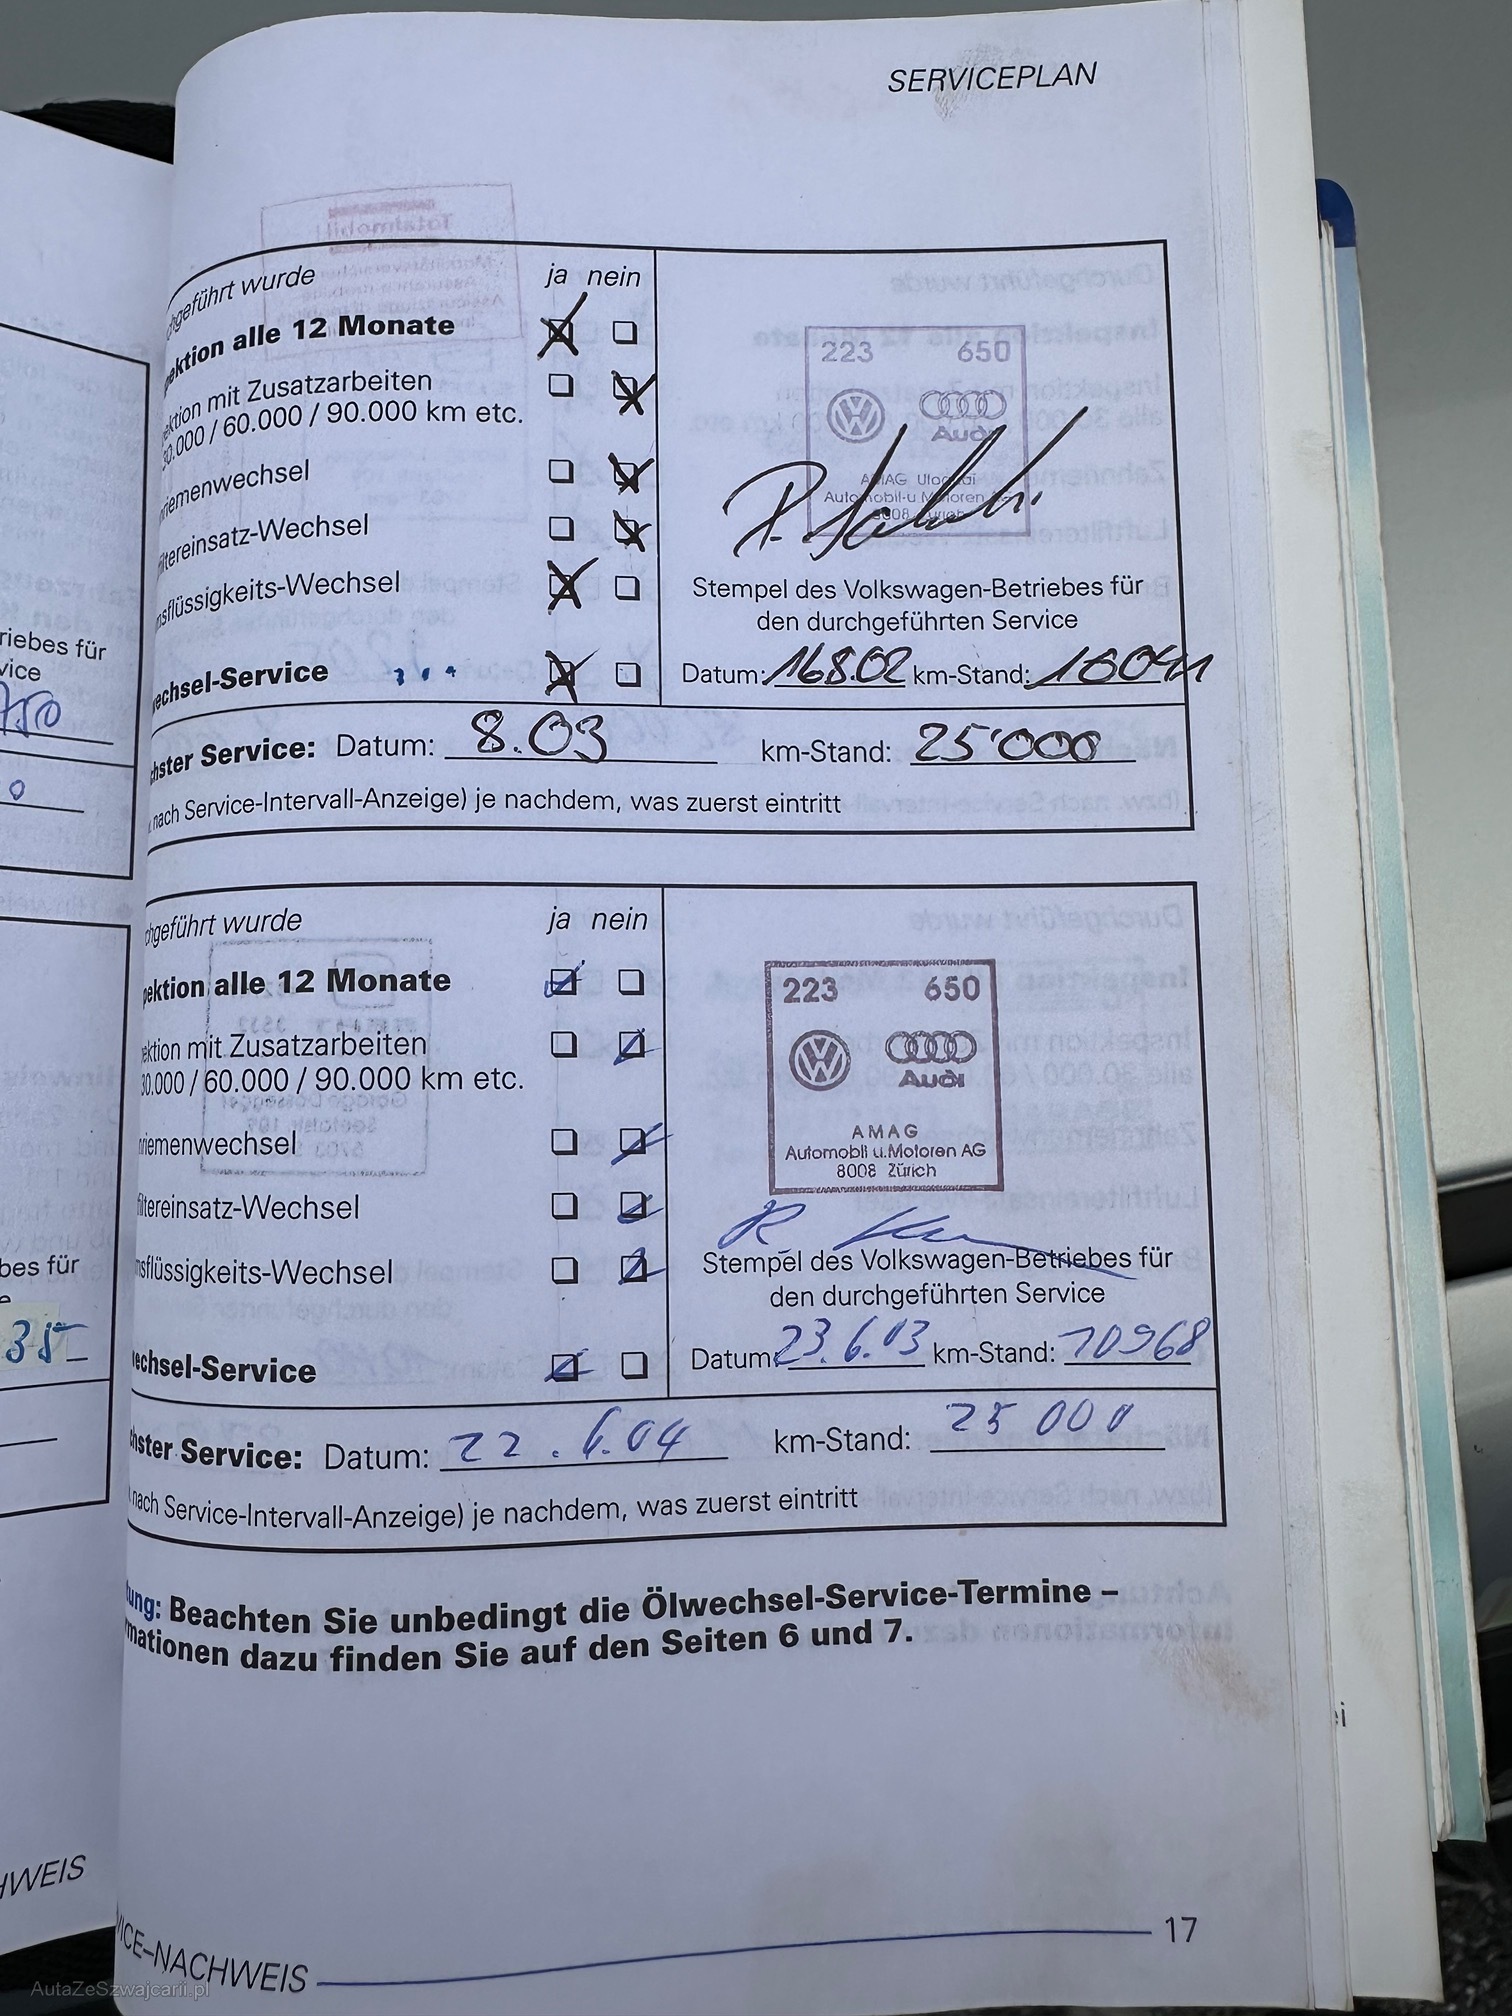 SERVICEPLAN
chgeführt wurde ja nein
pektion alle 12 Monate
ektion mit Zusatzarbeiten
30.000 / 60.000 / 90.000 km etc.
nriemenwechsel
filtereinsatz-Wechsel
nsflüssigkeits-Wechsel
wechsel-Service
223 650
Audi
AMAG Utoquai
Automobil-u.Motoren AG
8008 Zürich
Stempel des Volkswagen-Betriebes für
den durchgeführten Service
Datum: 16.8.02 km-Stand:
chster Service: Datum: 8.03 km-Stand: 25'000
. nach Service-Intervall-Anzeige) je nachdem, was zuerst eintritt
chgeführt wurde ja nein
pektion alle 12 Monate
ektion mit Zusatzarbeiten
30.000 / 60.000 / 90.000 km etc.
nriemenwechsel
filtereinsatz-Wechsel
nsflüssigkeits-Wechsel
wechsel-Service
223 650
Audi
AMAG
Automobil u.Motoren AG
8008 Zürich
Stempel des Volkswagen-Betriebes für
den durchgeführten Service
Datum: 23.6.03 km-Stand: 10968
chster Service: Datum: 22.6.04 km-Stand: 25 000
. nach Service-Intervall-Anzeige) je nachdem, was zuerst eintritt
tung: Beachten Sie unbedingt die Ölwechsel-Service-Termine –
rmationen dazu finden Sie auf den Seiten 6 und 7.
VICE–NACHWEIS 17
riebes für
vice
750
0
bes für
e
35
HWEIS
AutaZeSzwajcarii.pl